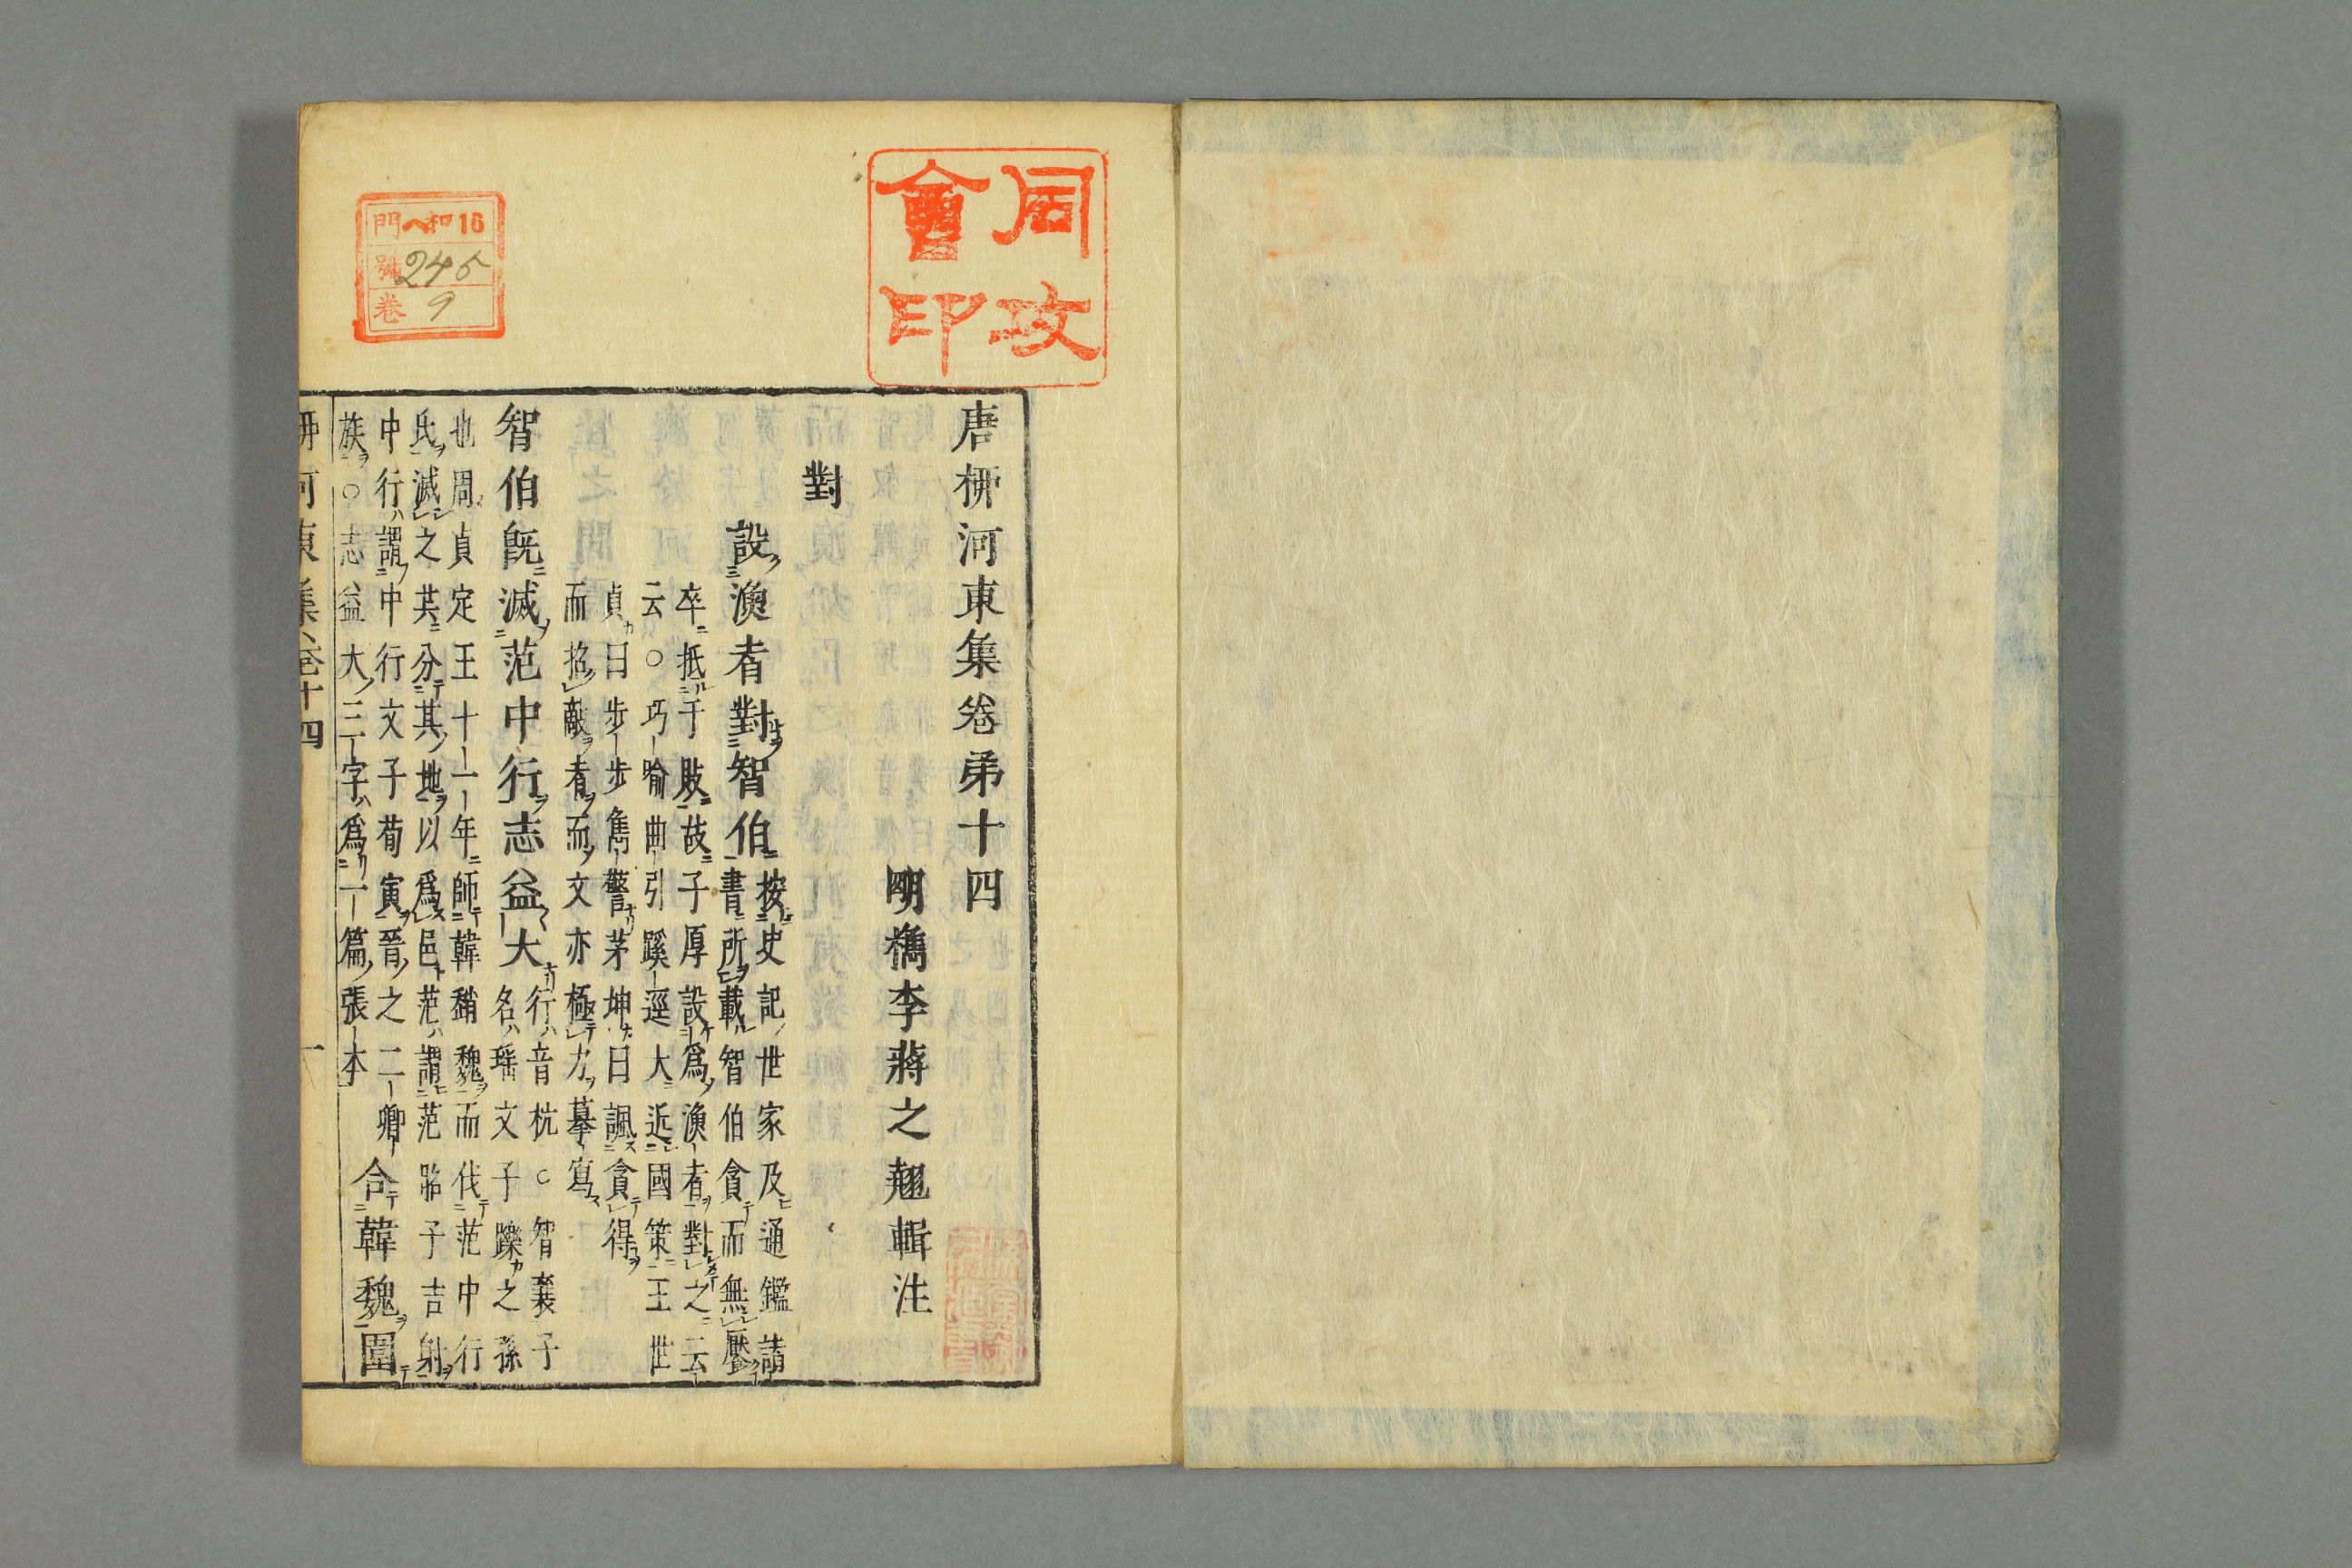 唐桺河東集卷弟十四
明檇李蔣之翹輯注
對
設漁者對智伯
按史記世家及通鑑請
書所載智伯貪而無壓
卒抵于敗故子厚設爲漁者對之云
云○巧喻曲引蹊逕大近國策王世
貞曰步步雋警茅坤曰諷貪得
而掊敵者而文亦極力摹寫
智伯旣滅范中行志益大
行音杭○智襄子
名瑤文子躒之孫
也周貞定王十一年師韓趙魏而伐范中行
氏滅之共分其地以爲邑范謂范昭子吉射
中行謂中行文子荀寅晉之二卿
族○志益大三字爲一篇張本
合韓魏圍
桺河東集卷十四
一
同攻會印
16和ヘ門
號245
卷9